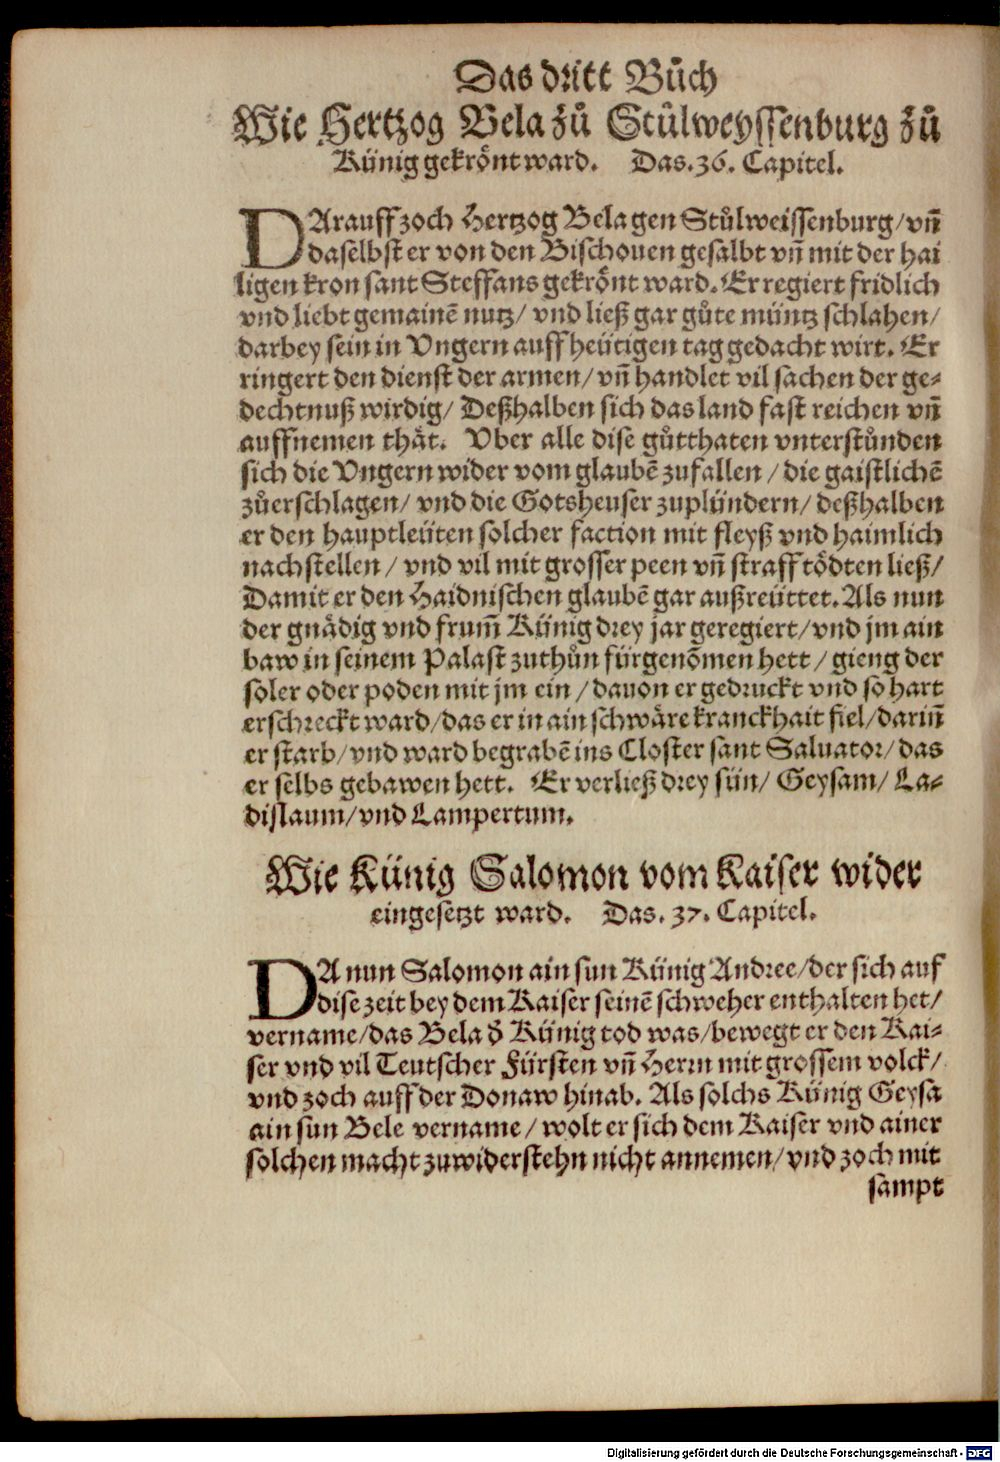 Das dritt Bůch
Wie Hertzog Bela zů Stůlweyssenburg zů
Künig gekrönt ward. Das. 36. Capitel.
DArauff zoch Hertzog Bela gen Stůlweissenburg/ vnñ
daselbst er von den Bischouen gesalbt vnñ mit der hai
ligen kron sant Steffans gekrönt ward. Er regiert fridlich
vnd liebt gemainẽ nutz/ vnd ließ gar gůte müntz schlahen/
darbey sein in Vngern auff heütigen tag gedacht wirt. Er
ringert den dienst der armen/ vnñ handlet vil sachen der ge-
dechtnuß wirdig/ Deßhalben sich das land fast reichen vnñ
auffnemen thät. Vber alle dise gůtthaten vnterstůnden
sich die Vngern wider vom glaubẽ zufallen/ die gaistlichẽ
zůerschlagen/ vnd die Gotsheuser zuplündern/ deßhalben
er den hauptleüten solcher faction mit fleyß vnd haimlich
nachstellen/ vnd vil mit grosser peen vnñ straff tödten ließ/
Damit er den Haidnischen glaubẽ gar außreüttet. Als nun
der gnädig vnd frum̃ Künig drey jar geregiert/ vnd jm ain
baw in seinem Palast zuthůn fürgenõmen hett/ gieng der
soler oder poden mit jm ein/ dauon er gedruckt vnd so hart
erschreckt ward/ das er in ain schwäre kranckhait fiel/ dariñ
er starb/ vnd ward begrabẽ ins Closter sant Saluator/ das
er selbs gebawen hett. Er verließ drey sün/ Geysam/ La-
dislaum/ vnd Lampertum.
Wie Künig Salomon vom Kaiser wider
eingesetzt ward. Das. 37. Capitel.
DA nun Salomon ain sun Künig Andree/ der sich auf
dise zeit bey dem Kaiser seinẽ schweher enthalten het/
vername/ das Bela d̃ Künig tod was/ bewegt er den Kai-
ser vnd vil Teutscher Fürsten vnñ Herrn mit grossem volck/
vnd zoch auff der Donaw hinab. Als solchs Künig Geysa
ain sun Bele vername/ wolt er sich dem Kaiser vnd ainer
solchen macht zuwiderstehn nicht annemen/ vnd zoch mit
sampt
Digitalisierung gefördert durch die Deutsche Forschungsgemeinschaft - DFG